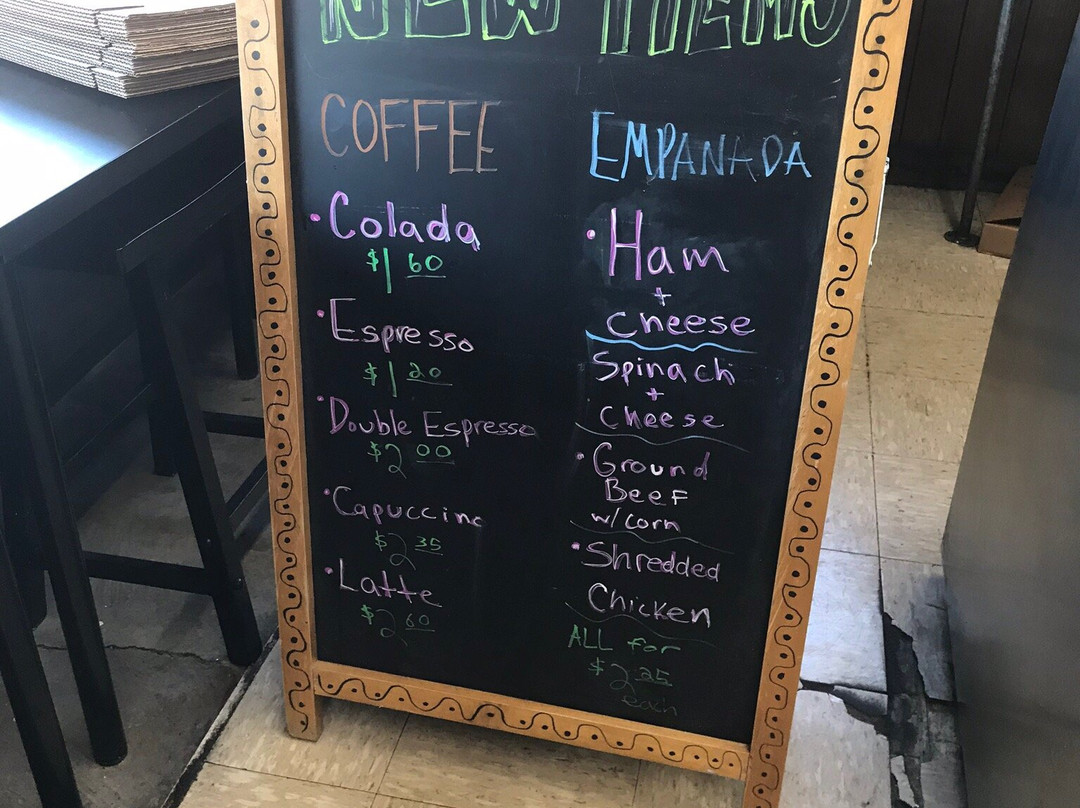 NEW ITEMS
COFFEE
• Colada
$1 60
• Espresso
$1 20
• Double Espresso
$2 00
• Capuccino
$2 35
• Latte
$2 60
EMPANADA
• Ham
+
cheese
Spinach
+
cheese
• Ground
Beef
w/corn
• Shredded
Chicken
ALL for
$2 25
each